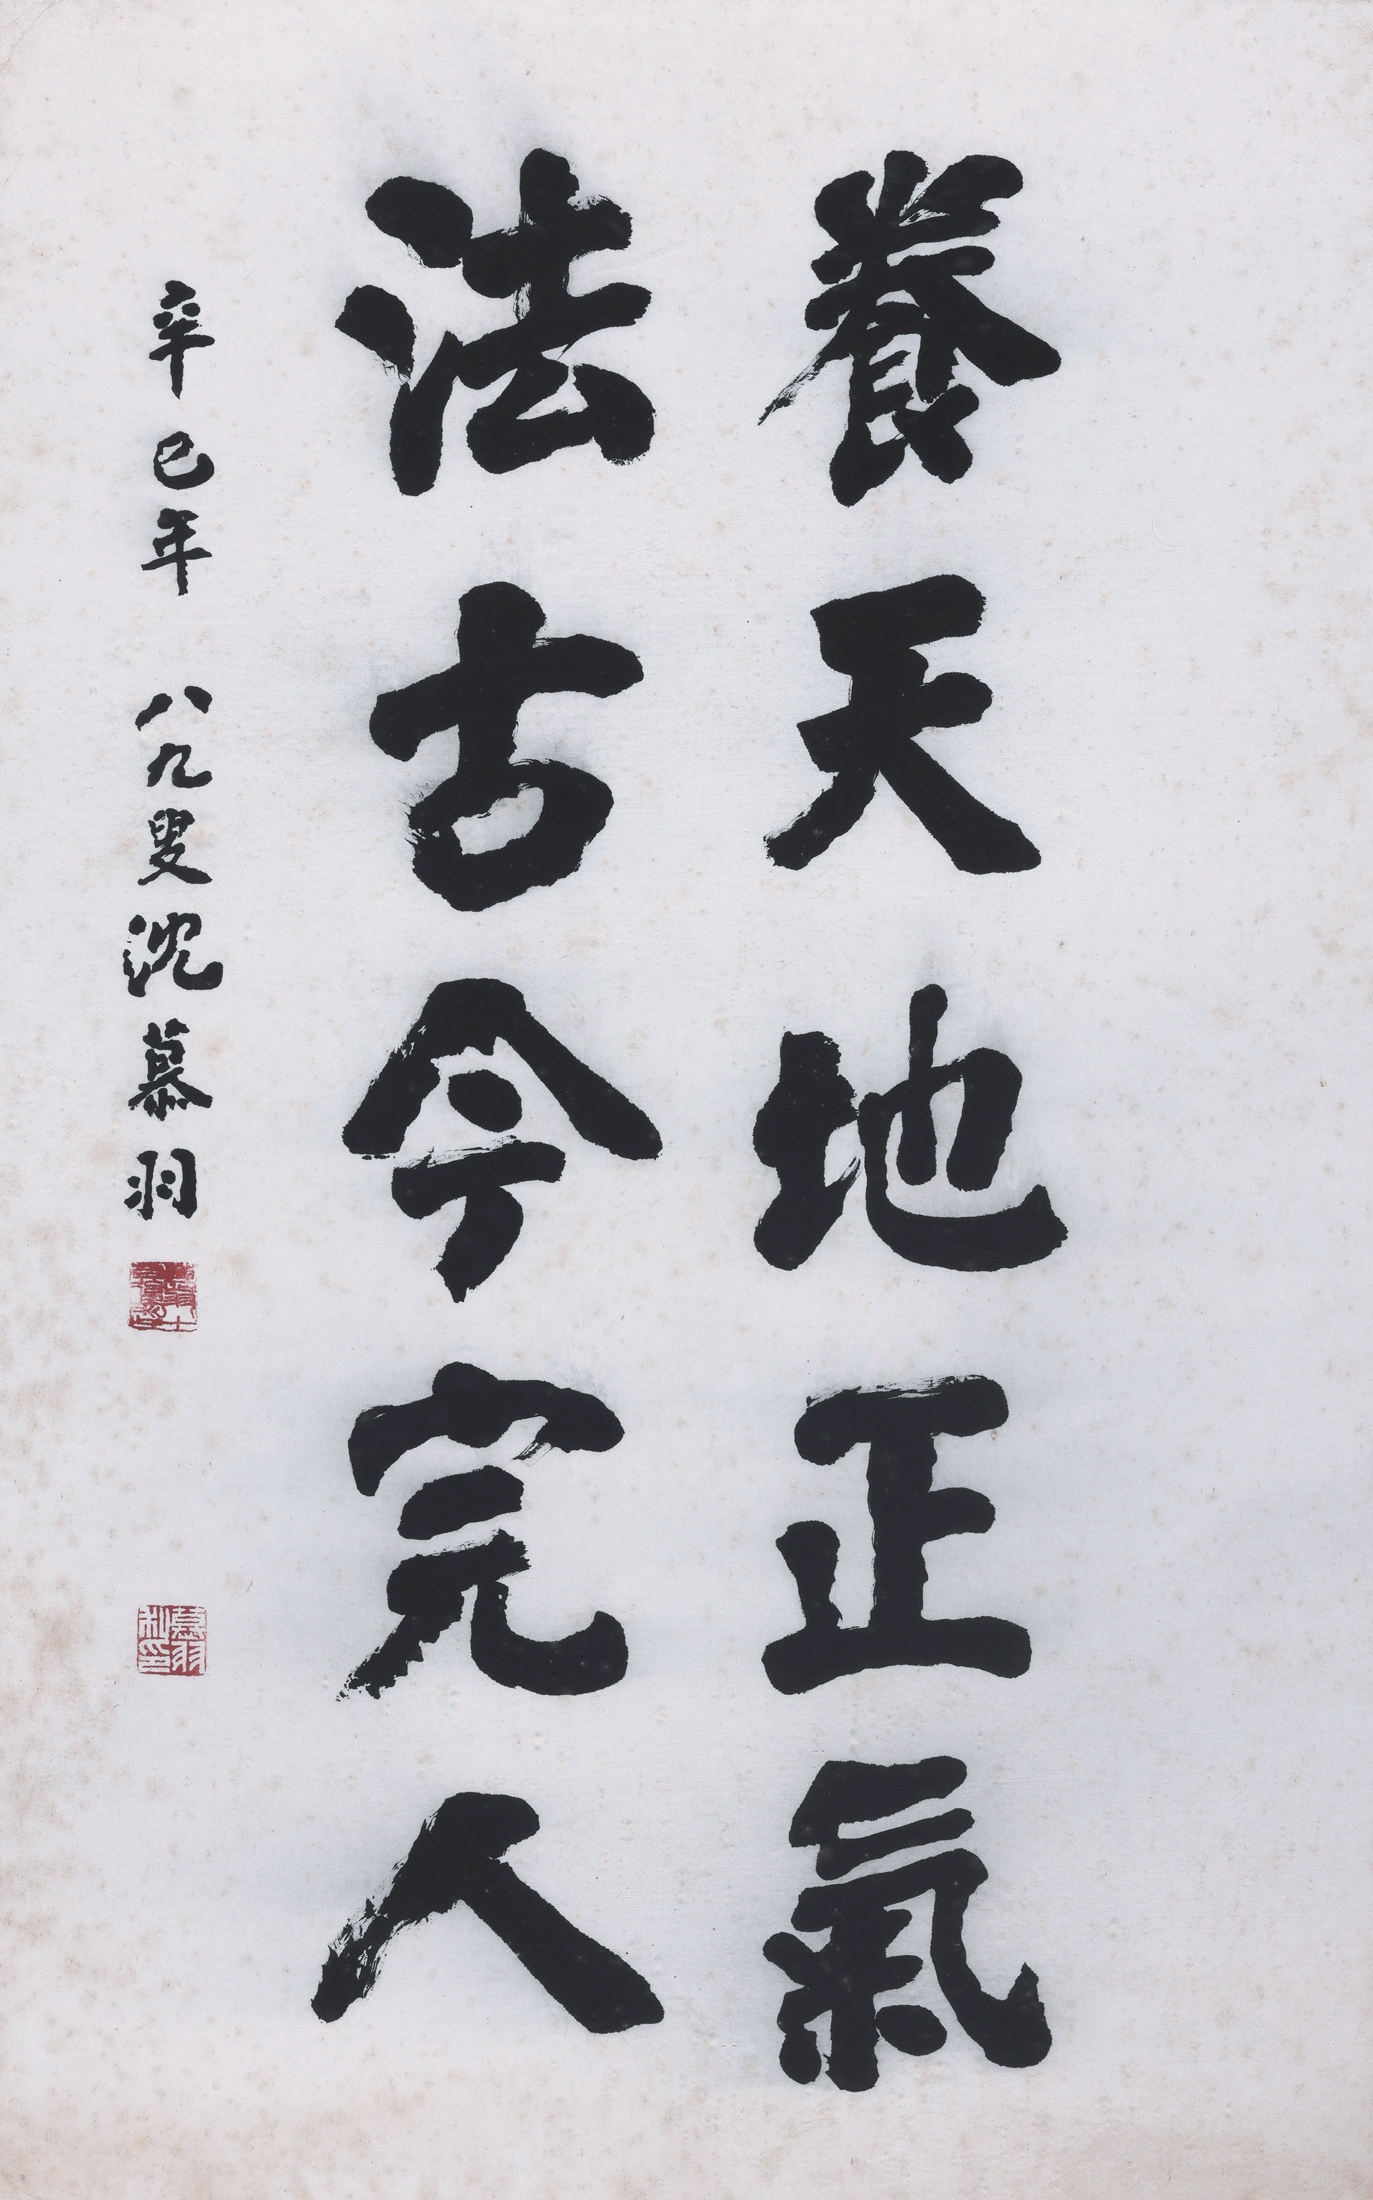 養天地正氣
法古今完人
辛巳年 八九叟沈慕羽
慕羽私印